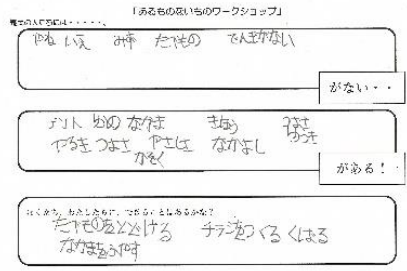 「あるものないものワークショップ」
やね いえ みず たてもの でんきがない
がない・・
テント ゆめ なかま きぼう つよさ
やるき つよさ やさしさ なかよし ゆうき
かぞく
がある!・
ぼくたち、わたしたちに、できることはあるかな?
たてものをとどける チラシをつくる くばる
なかまをふやす